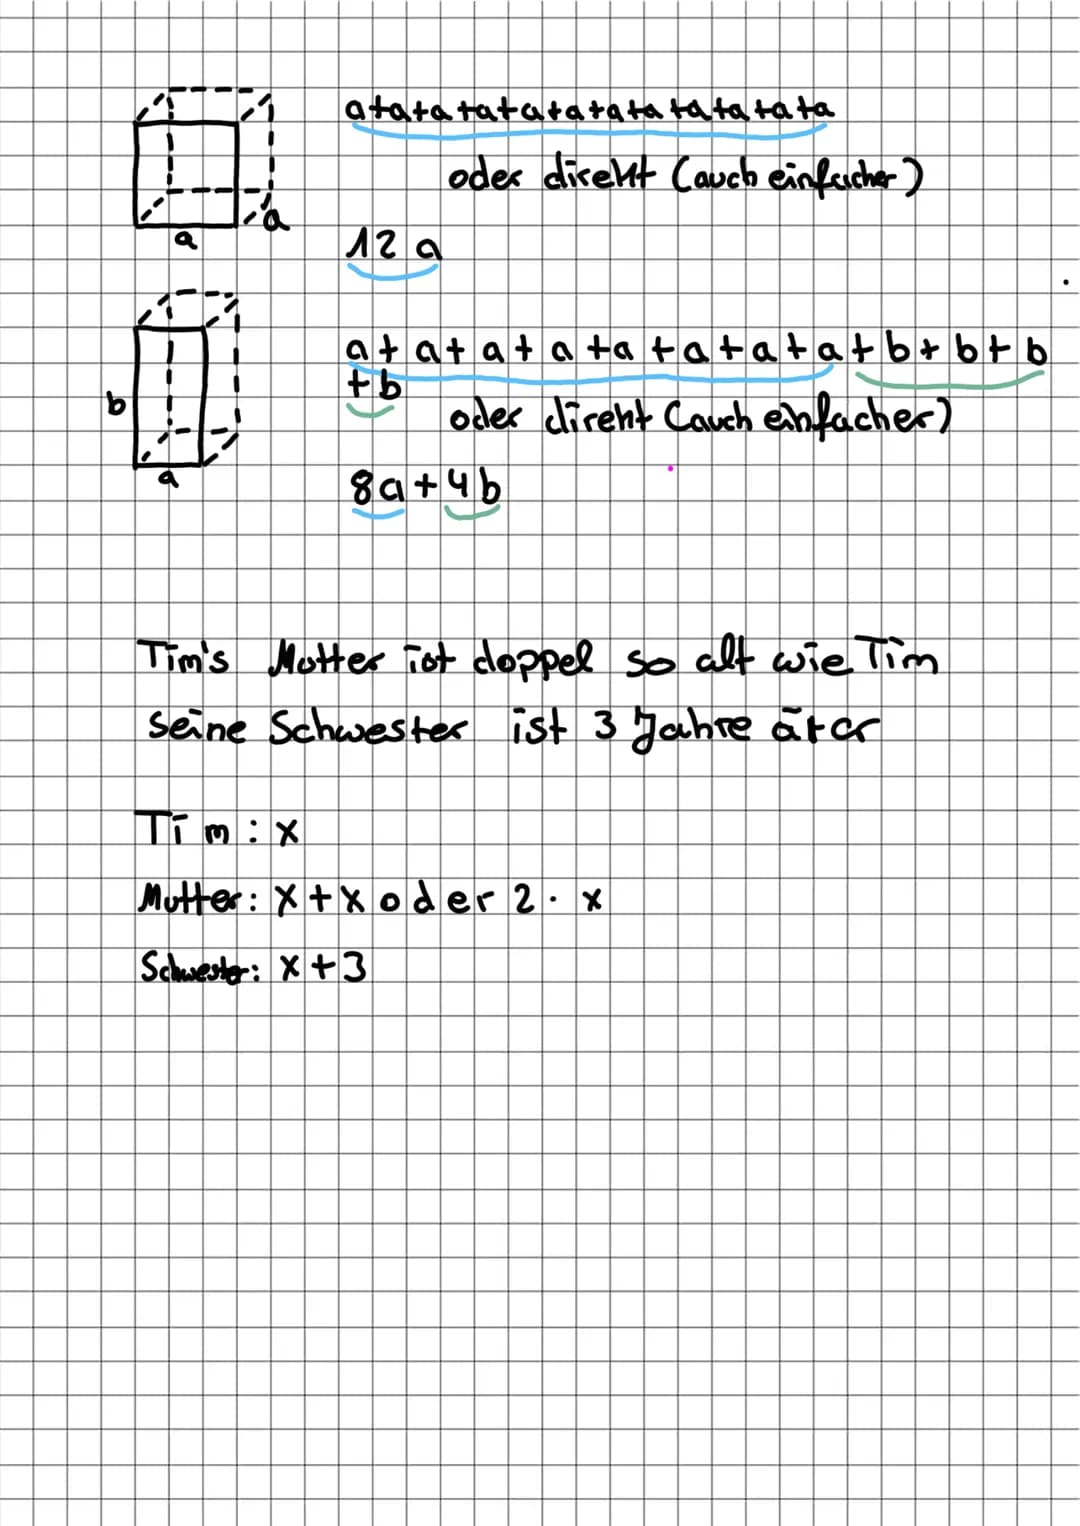 a+a+a+a+a+a+a+a+a+a+a+a
oder direkt (auch einfacher)
a
a
12 a
a + a + a + a + a + a + a + a + b + b + b
+ b
b
oder direkt (auch einfacher)
a
8a + 4b
Tim's Mutter ist doppel so alt wie Tim
seine Schwester ist 3 Jahre
Tim: x
Mutter: x + x oder 2 · x
Schwester: x + 3